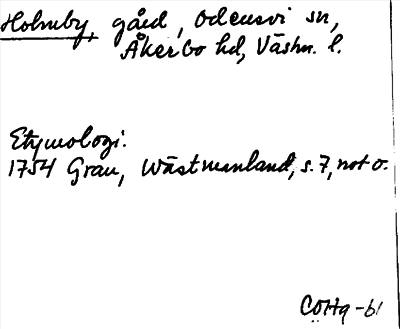 Holmby, gård, Odensvi sn,
Åkerbo hd, Västm. l.
Etymologi:
1754 Grau, Wästmanland, s. 7, not o.
COHg -61